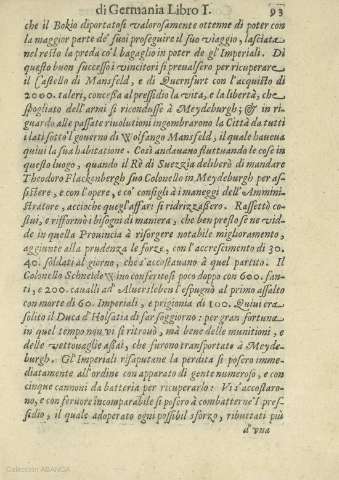 di Germania Libro I. 93
che il Bokio diportatosi valorosamente ottenne di poter con
la maggior parte de' suoi proseguire il suo viaggio, lasciata
nel resto la preda co'l bagaglio in poter de gl'Imperiali. Di
questo buon successo i vincitori si preualsero per ricuperare
il Castello di Mansfeld, e di Quernfurt con l'acquisto di
2000. taleri, concessa al pressidio la vita, e la libertà, che
spogliato dell'armi si ricondusse à Meydeburgh; & in ri-
guardo alle passate riuolutioni ingombrarono la Città da tutti
i lati sotto'l gouerno di Wolfango Mansfeld, il quale haueua
quiui la sua habitatione. Così andauano fluttuando le cose in
questo luogo, quando il Rè di Suezzia deliberò di mandare
Theodoro Flackenbergh suo Colonello in Meydeburgh per as-
sistere, e con l'opere, e co' consigli à i maneggi dell'Ammini-
stratore, acciòche quegl'affari si ridrizzassero. Rassettò co-
stui, e rifformò i bisogni di maniera, che ben presto se ne vid-
de in questa Prouincia à risorgere notabile miglioramento,
aggiunte alla prudenza le forze, con l'accrescimento di 30.
40. soldati al giorno, che s'accostauano à quel partito. Il
Colonello SchneideWino conferitosi poco doppo con 600. fan-
ti, e 200. caualli ad Aluersleben l'espugnò al primo assalto
con morte di 60. Imperiali, e prigionia di 100. Quiui era
solito il Duca d'Holsatia di far soggiorno: per gran fortuna
in quel tempo non vi si ritrouò, mà bene delle munitioni, e
delle vettouaglie assai, che furono transportate à Meyde-
burgh. Gl'Imperiali risaputane la perdita si posero imme-
diatamente all'ordine con apparato di gente numeroso, e con
cinque cannoni da batteria per ricuperarlo: Vi s'accostaro-
no, e con feruore incomparabile si posero à combatterne'l pre-
sidio, il quale adoperato ogni possibil sforzo, ributtati più
d'vna
Colección ABANCA